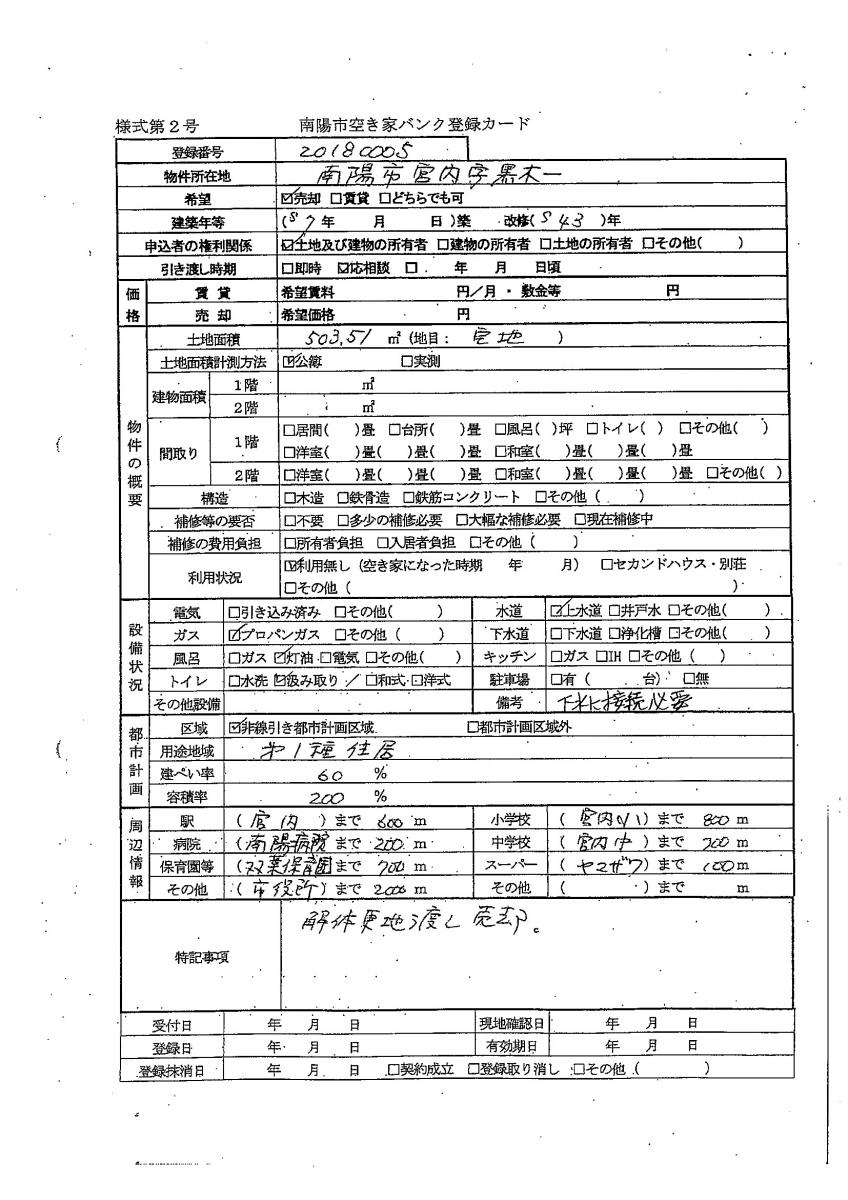 様式第２号 南陽市空き家バンク登録カード
登録番号 20180005
物件所在地 南陽市宮内字黒木一
希望 ☑売却 □賃貸 □どちらでも可
建築年等 (S7年 月 日)築 改修(S43)年
申込者の権利関係 ☑土地及び建物の所有者 □建物の所有者 □土地の所有者 □その他( )
引き渡し時期 □即時 ☑応相談 □ 年 月 日頃
価格 賃貸 希望賃料 円／月・敷金等 円
売却 希望価格 円
物件の概要 土地面積 503.51 ㎡(地目： 宅地 )
土地面積計測方法 ☑公簿 □実測
建物面積 1階 ㎡
2階 ㎡
間取り 1階 □居間( )畳 □台所( )畳 □風呂( )坪 □トイレ( ) □その他( )
□洋室( )畳( )畳( )畳 □和室( )畳( )畳( )畳
2階 □洋室( )畳( )畳( )畳 □和室( )畳( )畳( )畳 □その他( )
構造 □木造 □鉄骨造 □鉄筋コンクリート □その他( )
補修等の要否 □不要 □多少の補修必要 □大幅な補修必要 □現在補修中
補修の費用負担 □所有者負担 □入居者負担 □その他( )
利用状況 ☑利用無し(空き家になった時期 年 月) □セカンドハウス・別荘
□その他( )
設備状況 電気 □引き込み済み □その他( ) 水道 ☑上水道 □井戸水 □その他( )
ガス ☑プロパンガス □その他( ) 下水道 □下水道 □浄化槽 □その他( )
風呂 □ガス ☑灯油 □電気 □その他( ) キッチン □ガス □IH □その他( )
トイレ □水洗 ☑汲み取り ／ □和式・□洋式 駐車場 □有( 台) □無
その他設備 備考 下水に接続必要
都市計画 区域 ☑非線引き都市計画区域 □都市計画区域外
用途地域 第1種住居
建ぺい率 60 %
容積率 200 %
周辺情報 駅 (宮内)まで 600m 小学校 (宮内小)まで 800m
病院 (南陽病院)まで 200m 中学校 (宮内中)まで 700m
保育園等 (双葉保育園)まで 700m スーパー (ヤマザワ)まで 100m
その他 (市役所)まで 2000m その他 ( )まで m
特記事項 解体更地渡し売却。
受付日 年 月 日 現地確認日 年 月 日
登録日 年 月 日 有効期日 年 月 日
登録抹消日 年 月 日 □契約成立 □登録取り消し □その他( )